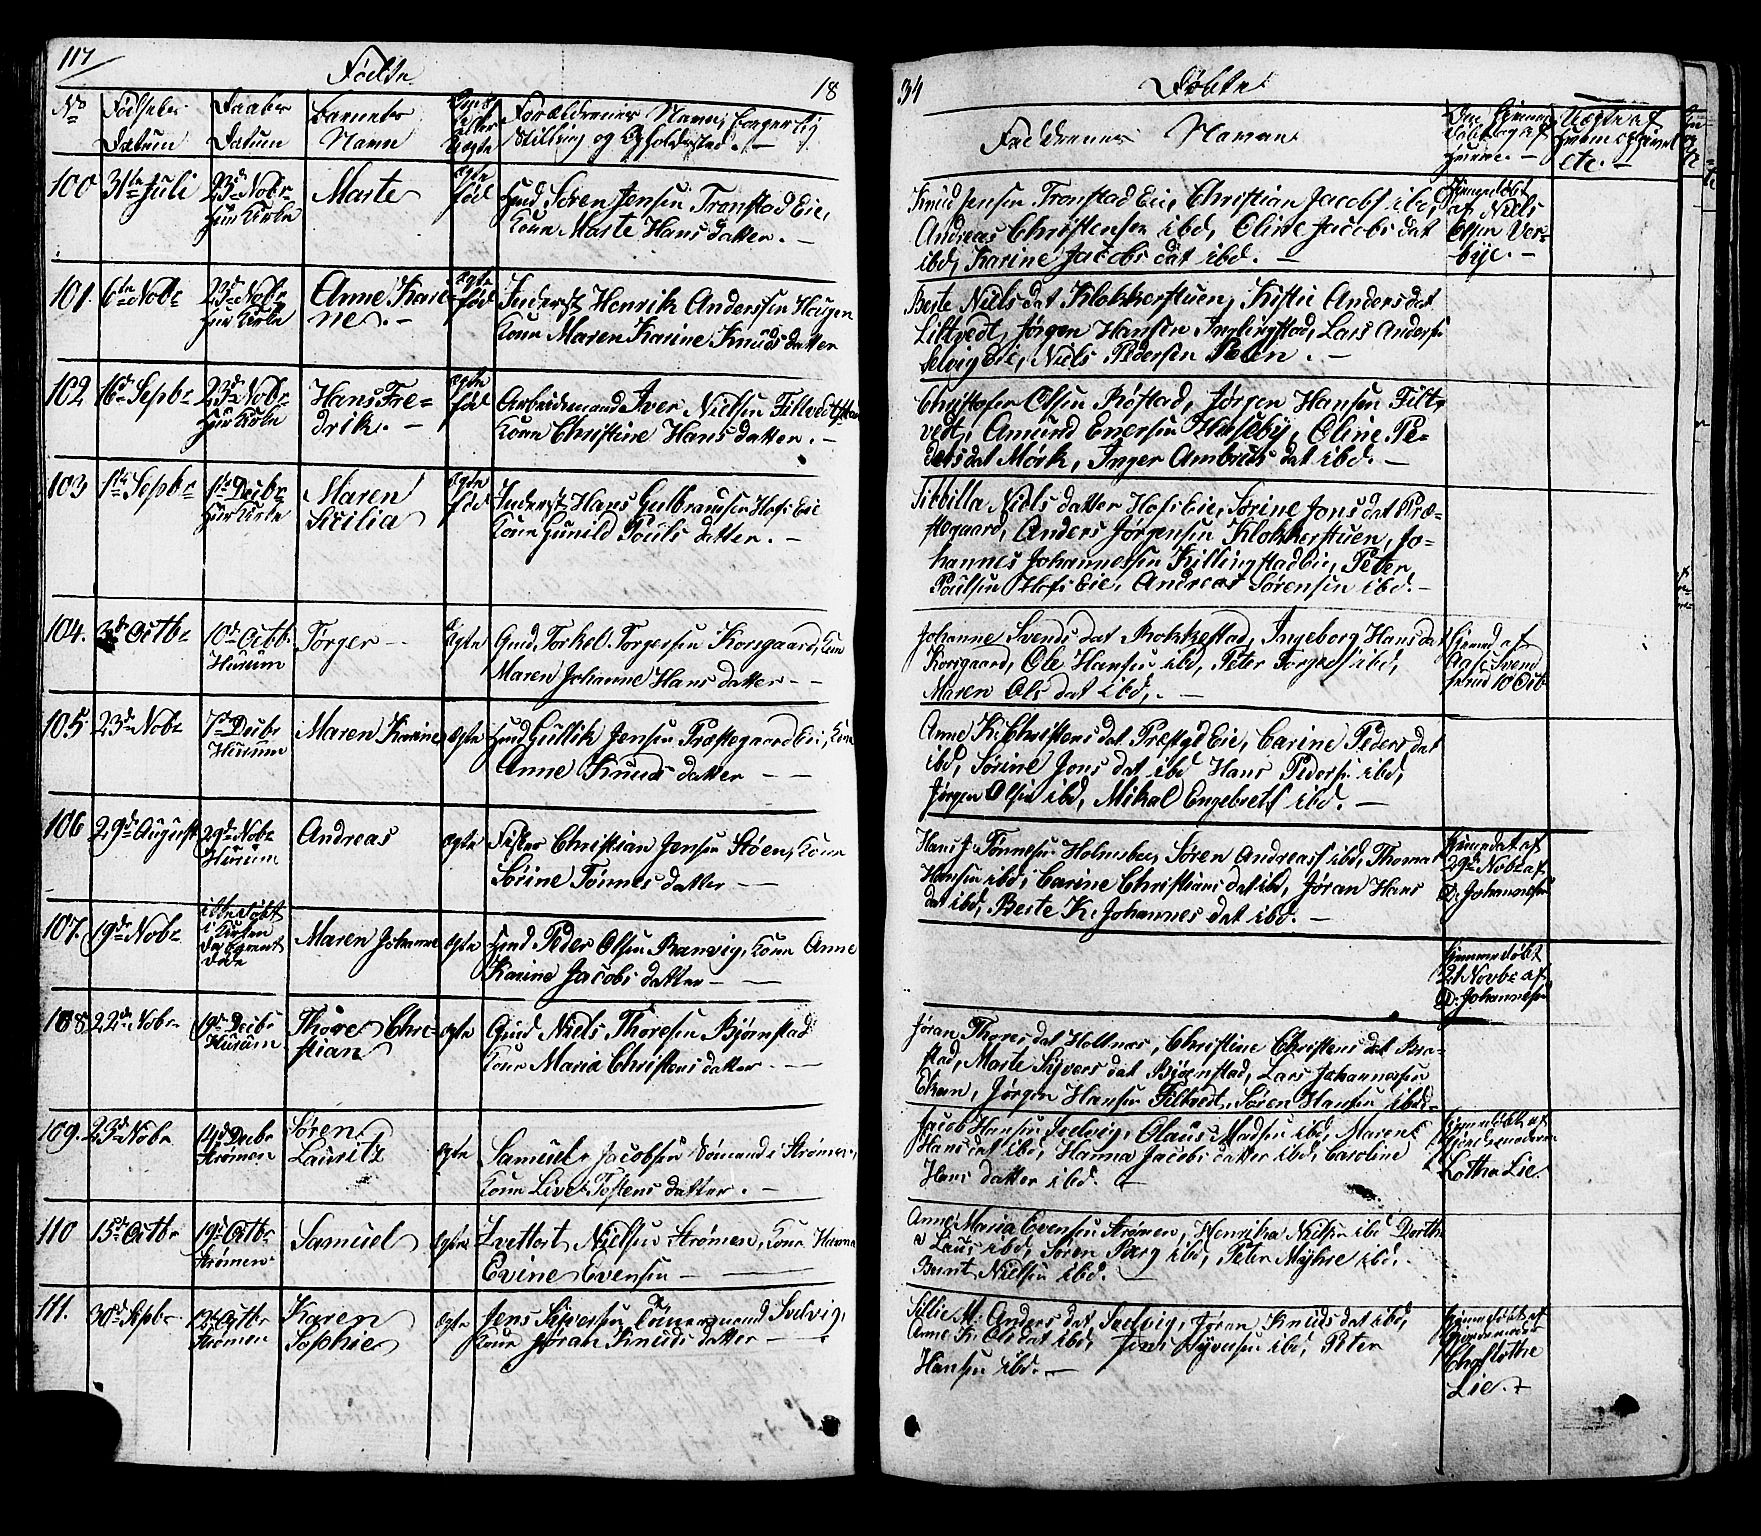 117
Fødte
18
No
Fødsels Datum
Daabs Datum
Barnets Navn
Forældrenes Navn, borgerlig
Stilling og Opholdssted. -
100 31te Juli 23de Novbr Hur Kirke Marte ægte fød Hmd Søren Jensen Tronstad Eie,
Kone Marte Hans datter. -
101. 6te Novbr 23de Novbr Hur Kirke Anne Kari-
ne. - ægte fød Inderst Henrik Anderssen Haugen
Kone Maren Karine Knuds datter
102 16de Sepbr 23de Novbr Hur Kirke Hans Fre-
drik. - ægte fød Arbeidsmand Iver Nielsen
Kone Christine Hans datter. -
103 1ste Sepbr 1ste Decbr Hur Kirke Maren
Sicilia ægte fød Inderst Hans Gulbransen Hofs Eie
Kone Gunild Pouls datter. -
104. 3de Octbr 10de Octb. Hurum Torger - ægte Gmd Torkel Torgersen Korsgaard, Kone
Maren Johanne Hans datter -
105. 23de Novbr 7de Decbr Hurum Maren Karine ægte Hmd Gullik Jensen Præstegaard Eie, Kone
Anne Knuds datter - -
106 29de August 29de Novbr Hurum Andreas ægte Fisker Christian Jensen Støen, Kone
Sørine Tønnes datter - -
107. 19de Novbr ikke døbt
i Kirken
da Barnet
døde Maren Johanne ægte Hmd Peder Olsen Ranvig, Kone Anne
Karine Jacobs datter - -
108 22de Novbr 19de Decbr Hurum Thore Chri-
stian ægte Gmd Niels Thoresen Bjørnstad
Kone Maria Christens datter - -
109. 23de Novbr 14de Decbr Strømen Søren
Lauritz ægte Samuel Jacobsen Sømand i Strømen,
Kone Live Tostens datter. -
110 15de Octbr 19de Octbr Strømen Samuel ægte Nielsen Strømen, Kone Hanna
Evine Evensen -
111. 30de Sepbr Octbr Strømen Karen
Sophie ægte Jens Sivertsen Tømermand Svelvig,
Kone Jøran Knuds datter -
34
Døbte
Faddernes Navne
Knud Jensen Tronstad Eie, Christian Jacobs ibd,
Andreas Christensen ibd, Oline Jacobs dat
ibd, Karine Jacobs dat ibd. -
Hiemedøbt
af Niels
Olsen Ver-
bye. -
Berte Niels dat Klokkerstuen, Kistie Anders dat
Filtvedt, Jørgen Hansen Lars Anders
Selvig Eie, Niels Pedersen
Christofer Olsen Røstad, Jørgen Hansen Filt-
vedt, Amund Enersen Huseby, Oline Pe-
ders dat Mørk, Inger Ambrüs dat ibd. -
Sibbilla Niels datter Hofs Eie, Sørine Jons dat Præ-
stegaard, Anders Jørgensen Klokkerstuen, Jo-
hannes Johannessen Killingstad Eie, Peter
Poulsen Hofs Eie, Andreas Sørensen ibd. -
Johanne Svends dat Rokkestad, Ingeborg Hans dat
Korsgaard, Ole Hansen ibd, Peter Torgers ibd,
Maren Ols dat ibd, -
Anne K. Christens dat Præstgd Eie, Carine Peders dat
ibd, Sørine Jons dat ibd Hans Peders ibd,
Jørgen Olsen ibd, Mikal Engebrets ibd. -
Hans J. Tønnesen Holmsboe, Søren Andreas ibd, Thomas
Hansen ibd, Carine Christians dat ibd, Jøran Hans
dat ibd, Berte K. Johannes dat ibd. -
Hiemedøbt af
29de Novbr af
O. Johannesen
Hiemedøbt
21 Novbr af
O. Johannesen
Jøran Thores dat Holtnes, Christine Christens dat Bra-
stad, Marte Syvers dat Bjørnstad, Lars Johannessen
Jørgen Hansen Filtvedt, Søren Hansen ibd. -
Jacob Hansen Svelvig, Olaus Madsen ibd, Maren
Hans dat ibd, Hanna Jacobs datter ibd, Caroline
Hans datter ibd. -
Hiemedøbt af
Jordemoderen
Lotha Lie
Anne Maria Evensen Strømen, Henrika Nielsen ibd Dorthe
Laus ibd, Søren Berg ibd, Peter Myhre ibd,
Bernt Nielsen ibd. -
Sillie M. Anders dat, Svelvig, Jøran Knuds dat ibd,
Anne K. Ols dat ibd, Jens Syversen ibd, Peter
Hansen ibd. -
Hiemedøbt af
Jordemoder
Lie. -